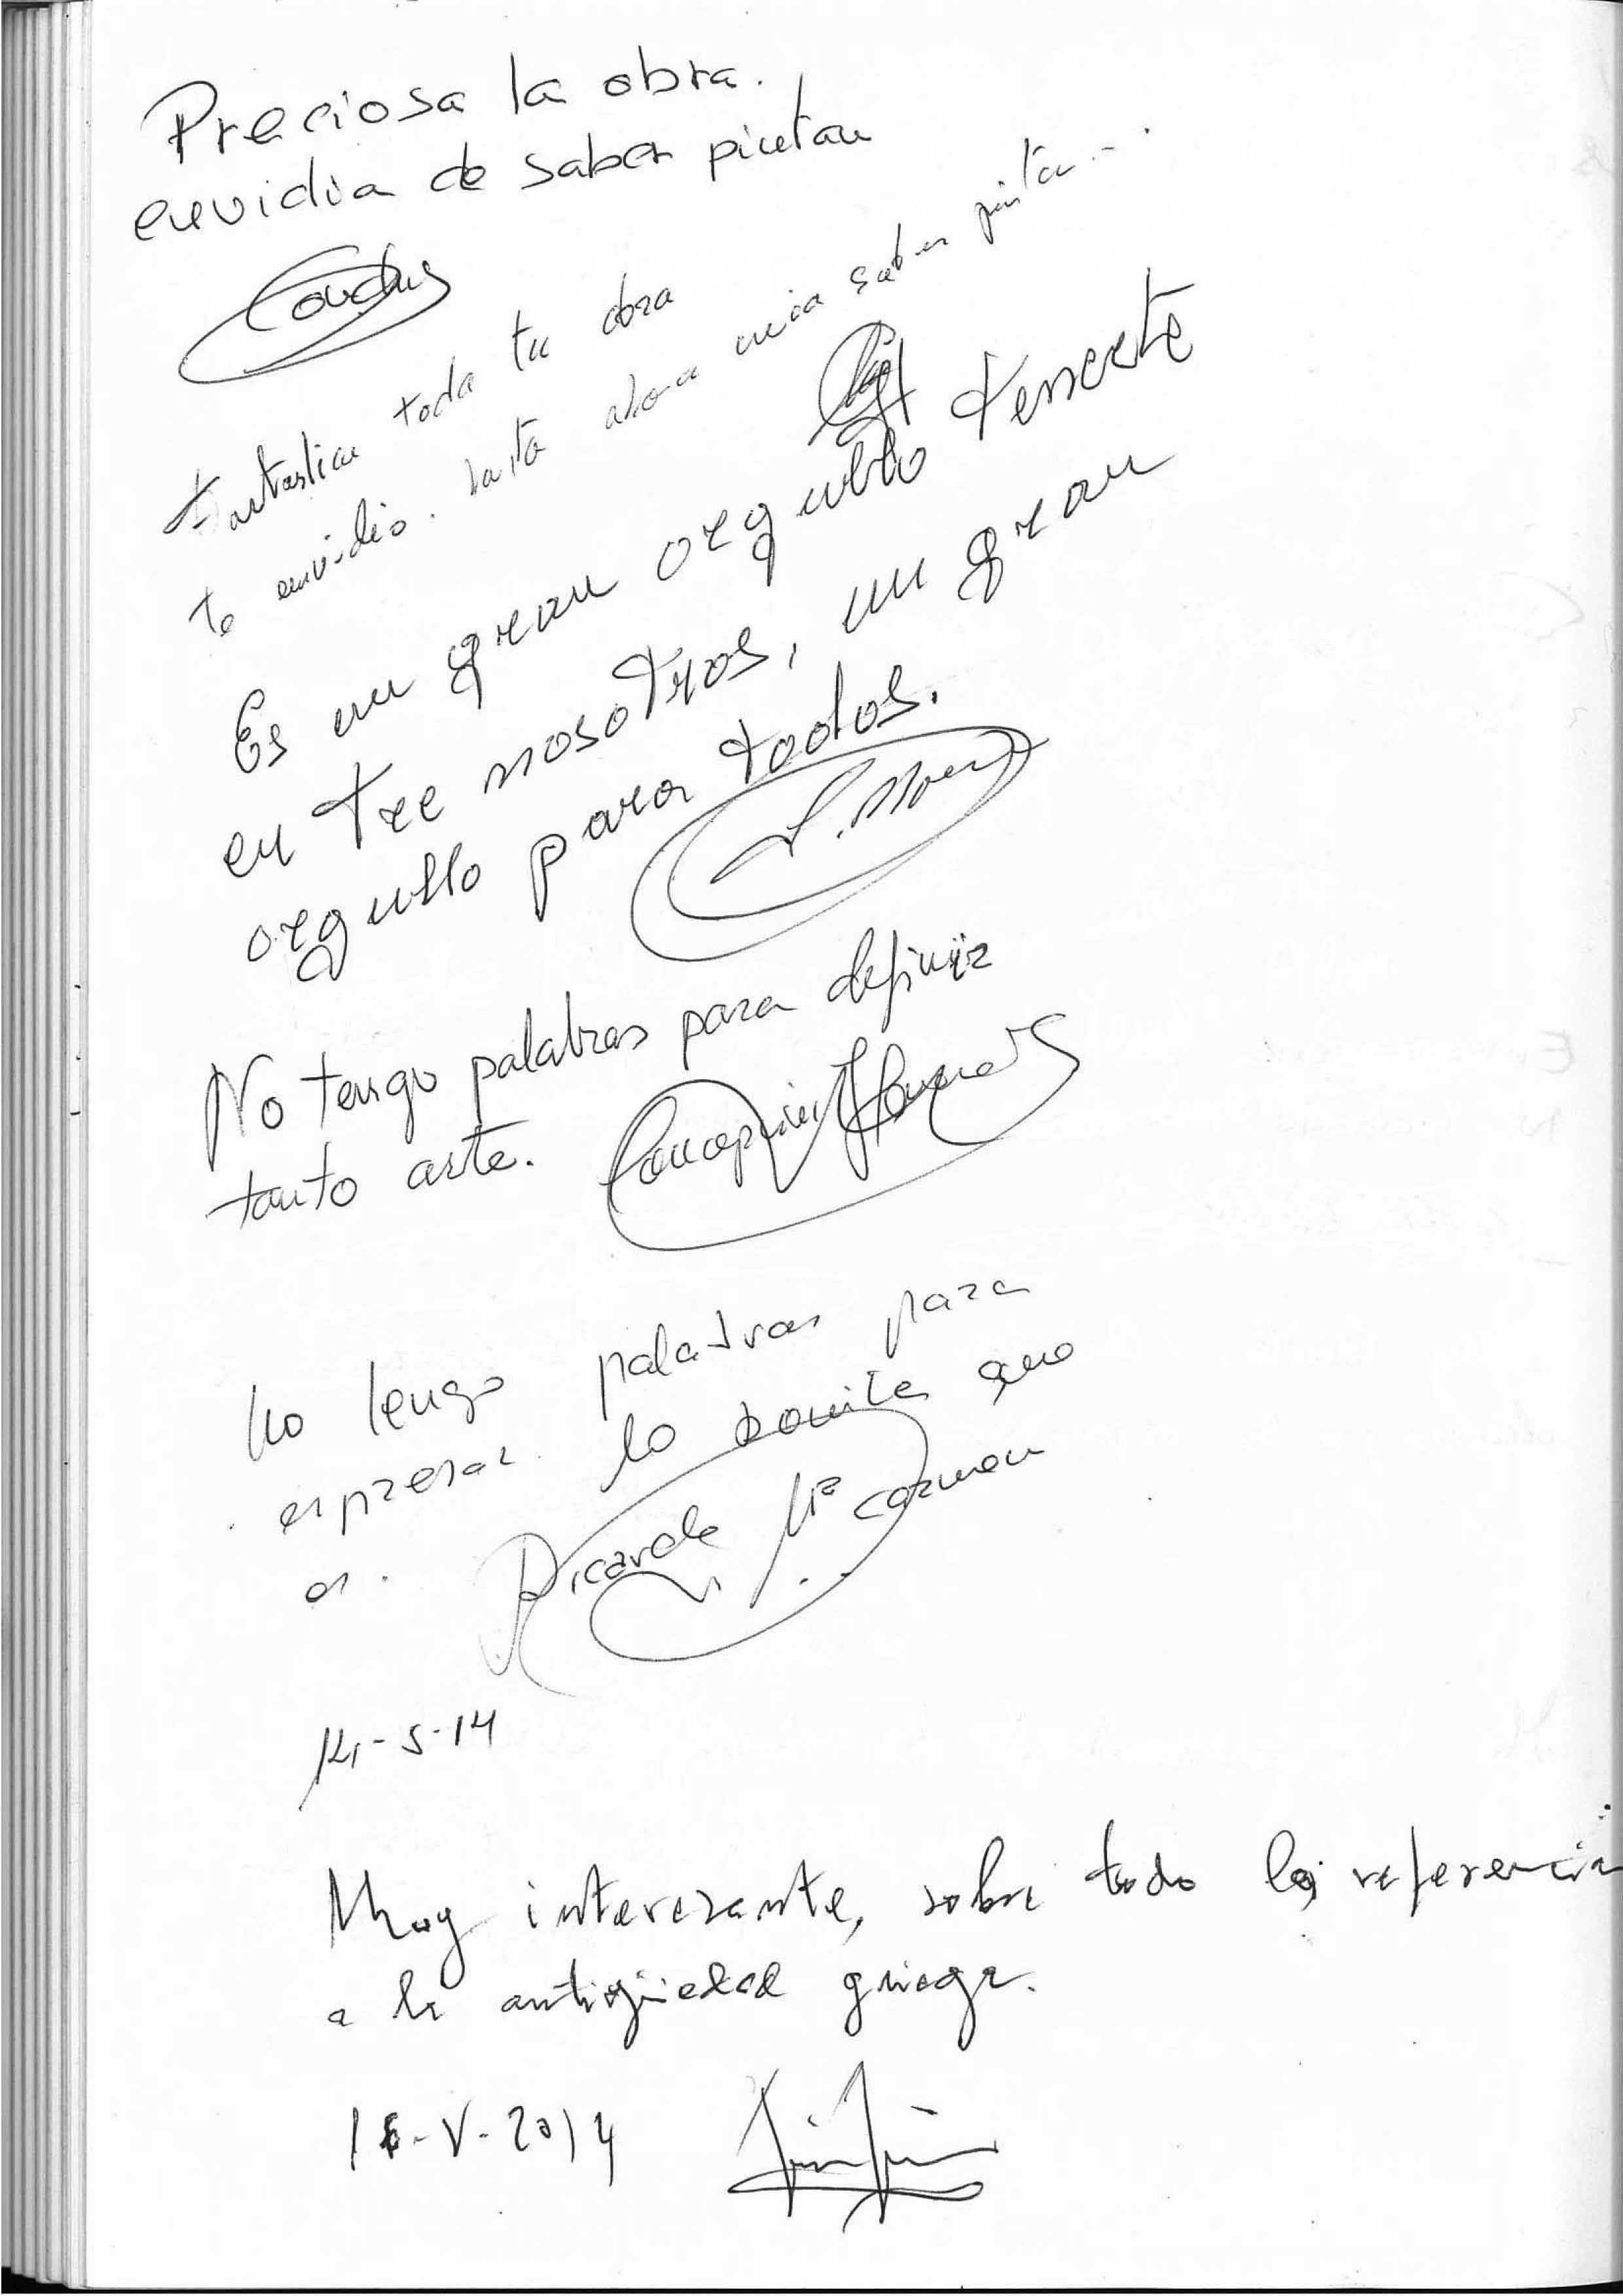 Preciosa la obra.
envidia de saber pintar
Fantastica toda tu obra
te envidio. hasta ahora
saber pintar...
Es un gran orgullo tenerte
entre nosotros, un gran
orgullo para todos.
No tengo palabras para definir
tanto arte. Concepción
No tengo palabras para
espresar lo bonita que
es. Ricardo Mª Carmen
14-5-14
Muy interesante, sobre todo las referencia
a la antigüedad griega.
16-V-2014